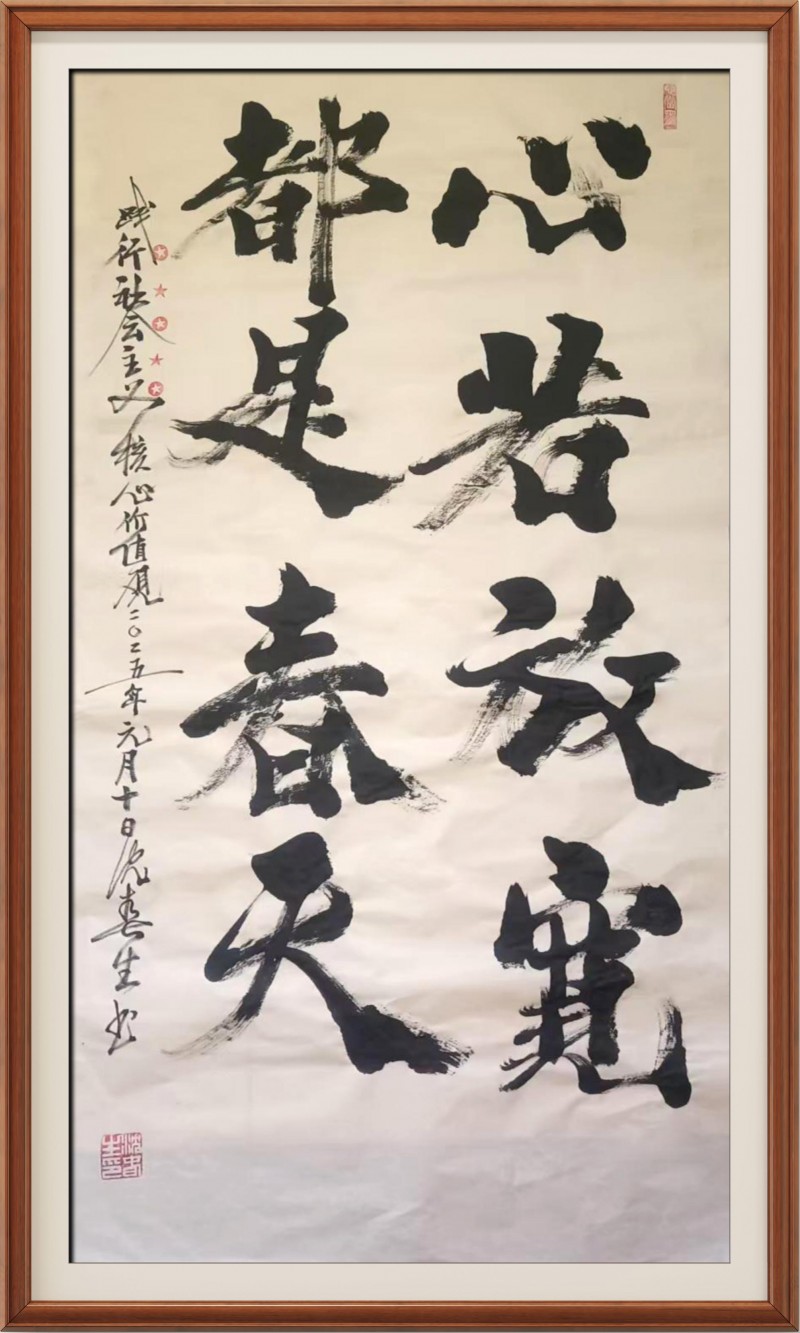 心若放寬
都是春天
践行社会主义核心价值观二〇二五年元月十日沈春生书